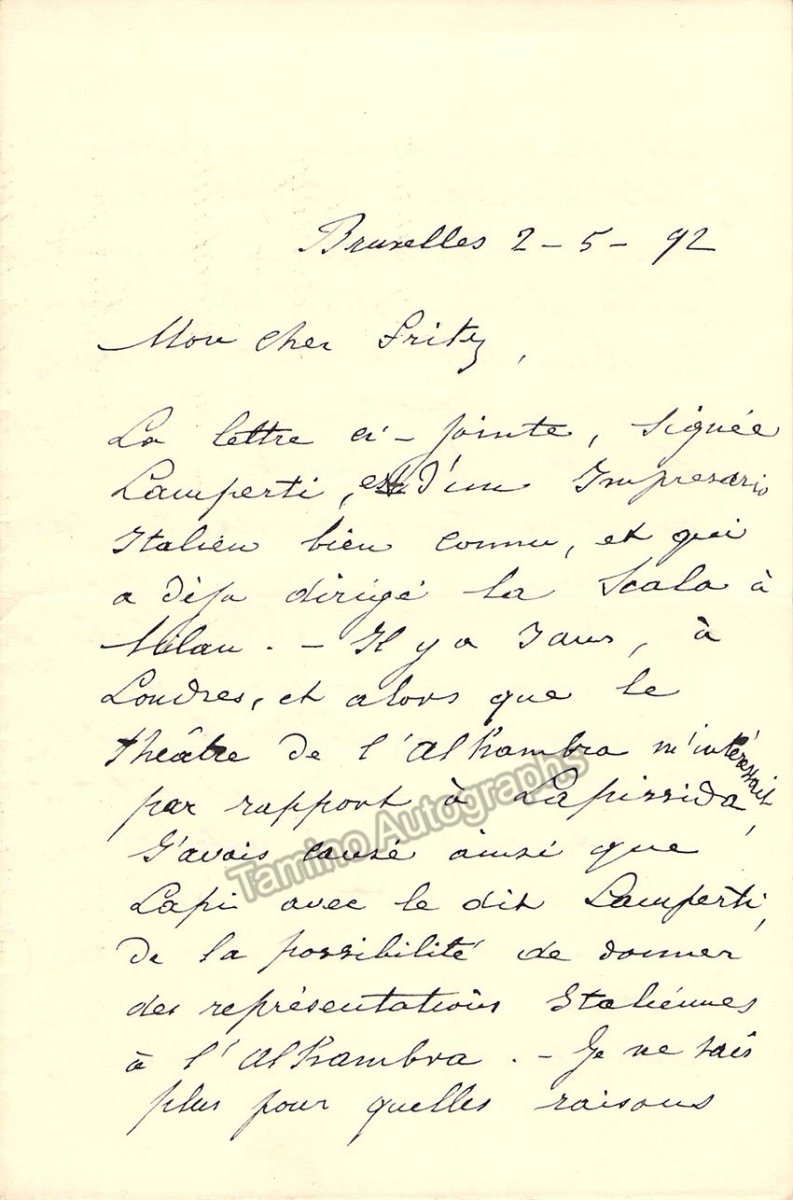 Bruxelles 2-5-92
Mon cher Fritz,
La lettre ci-jointe, signée
Lamperti, est d'un Impresario
Italien bien connu, et qui
a déja dirigé la Scala à
Milan. - Il y a 3 ans, à
Londres, et alors que le
théâtre de l'Alhambra m'intéressait
par rapport à Lapissida,
J'avais causé ainsi que
Lapi avec le dit Lamperti,
de la possibilité de donner
des représentations Italiennes
à l'Alhambra. - Je ne sais
plus pour quelles raisons
Tamino Autographs